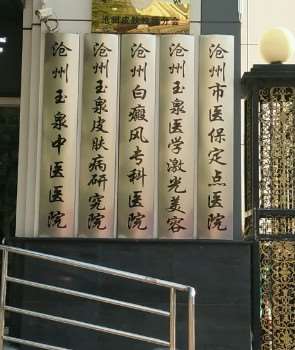 沧州玉泉中医医院
沧州玉泉皮肤病研究院
沧州白癜风专科医院
沧州玉泉医学激光美容
沧州市医保定点医院